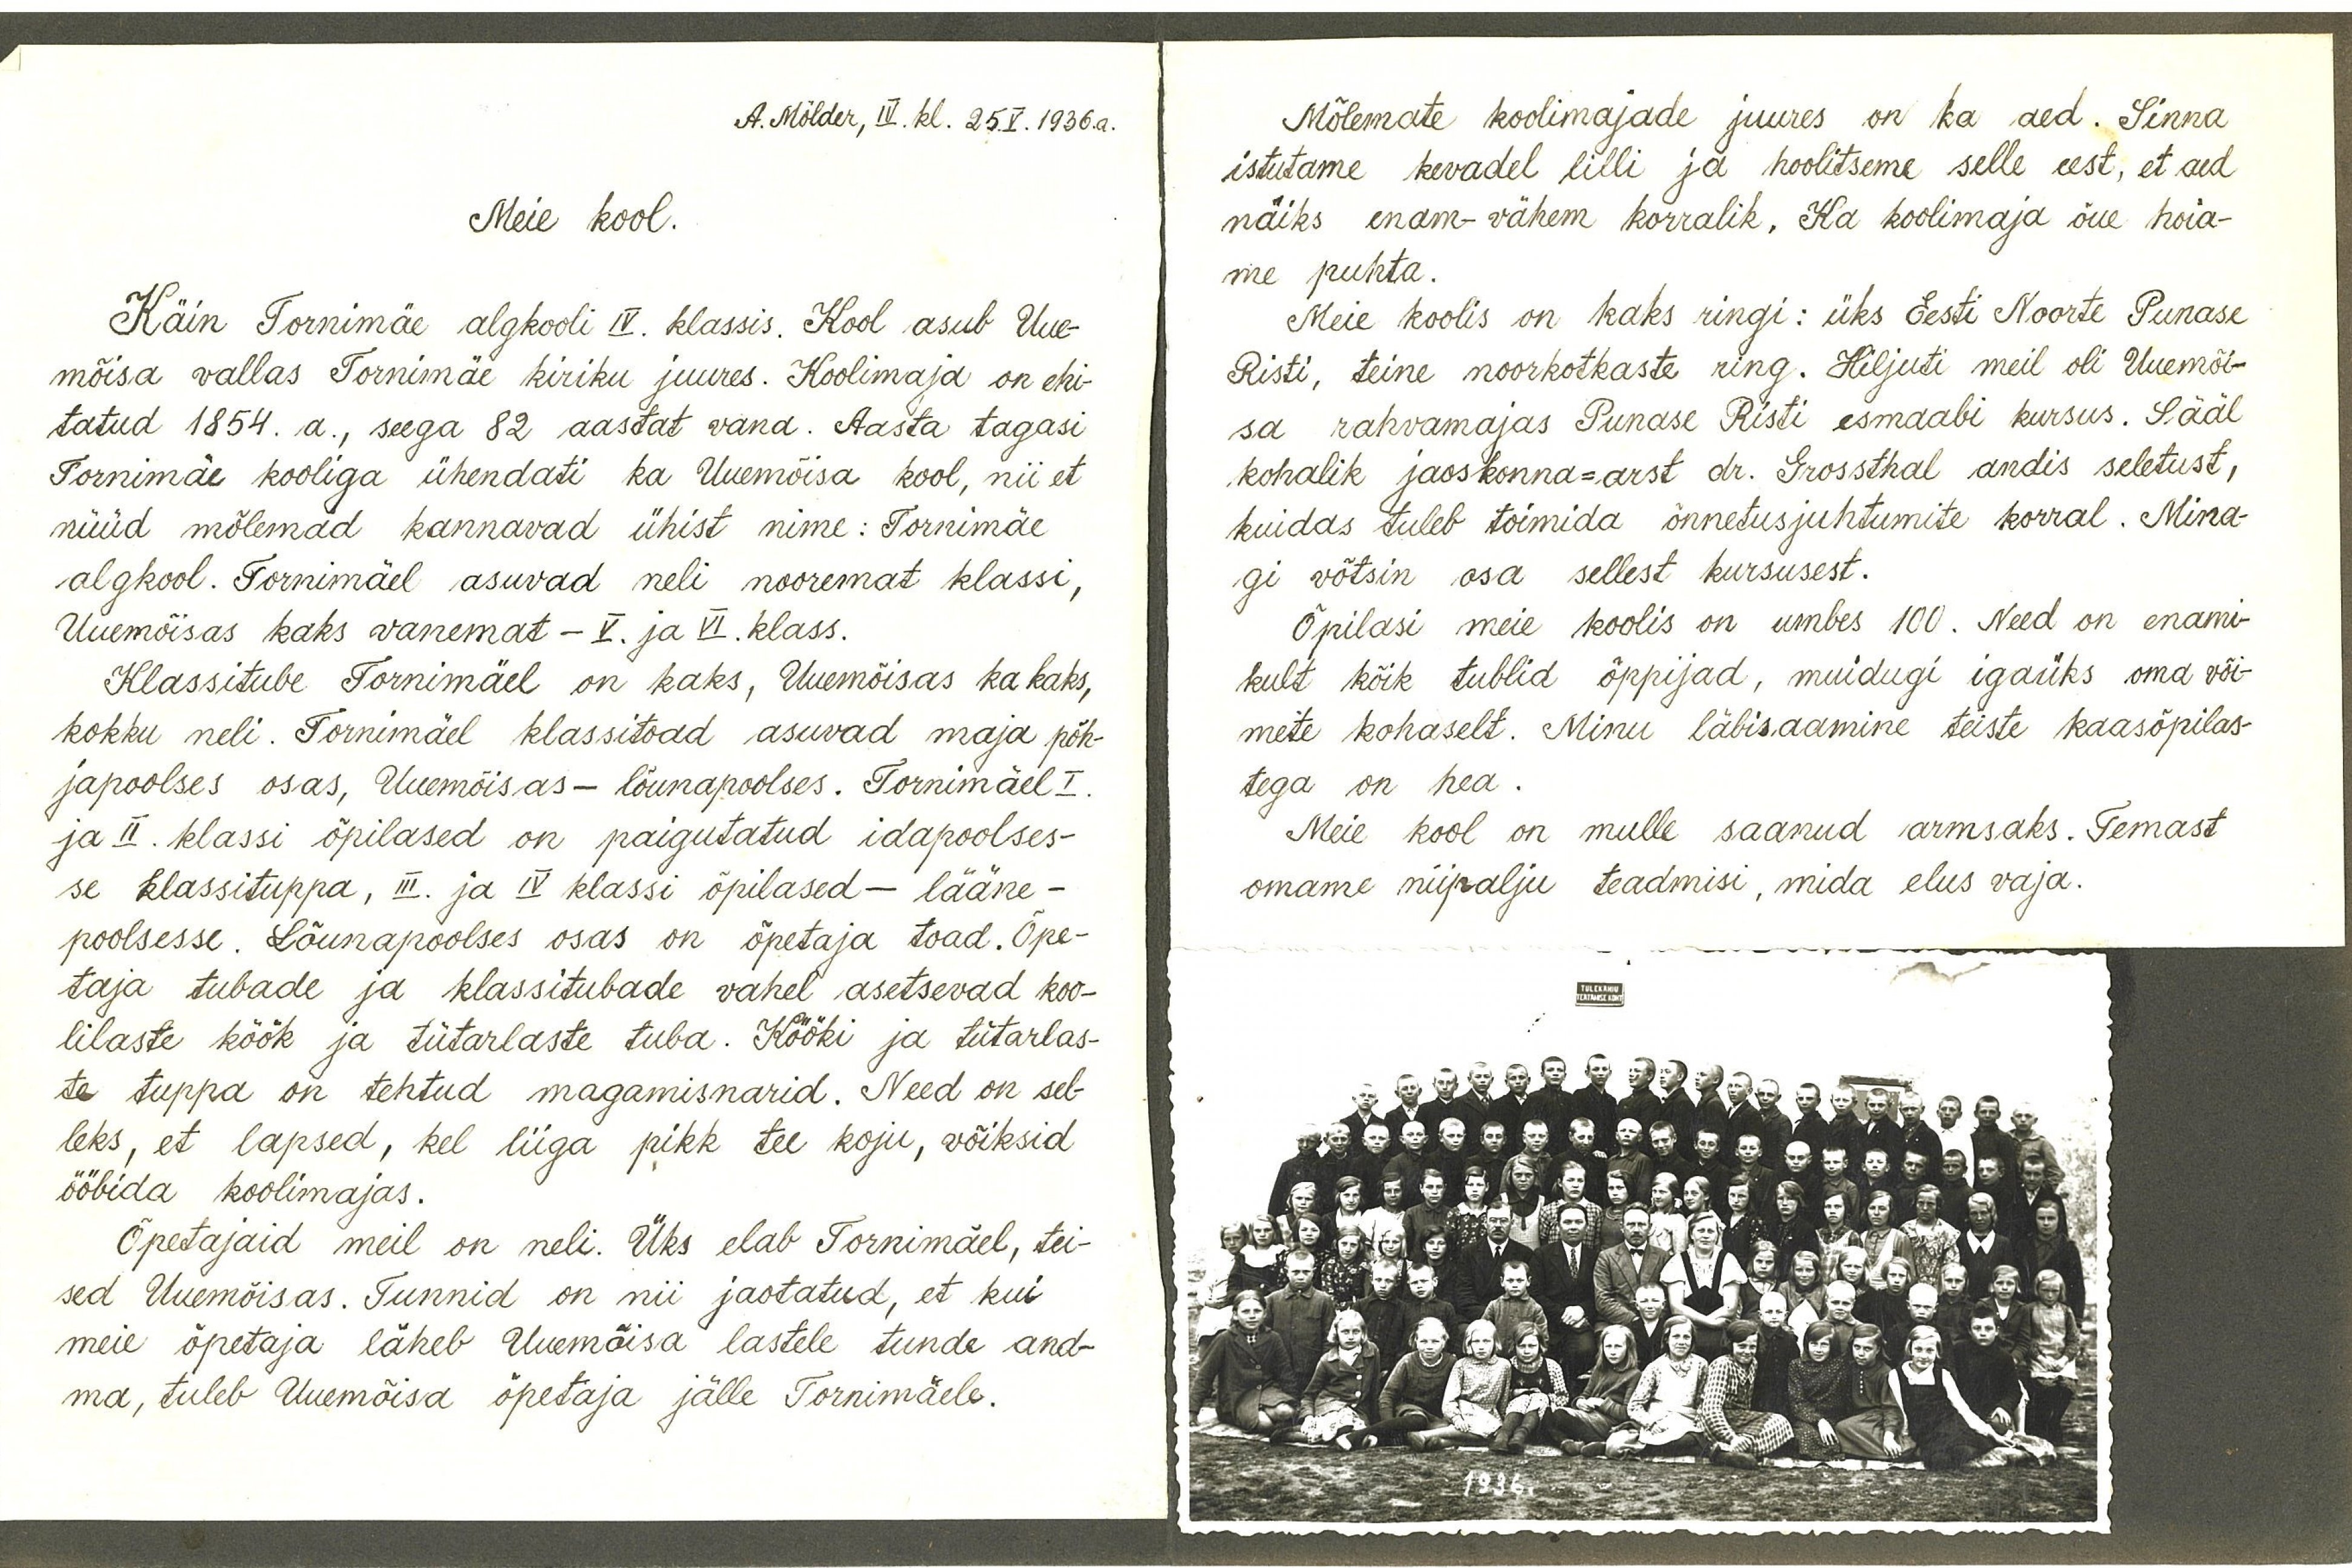 A. Mölder, IV. kl. 25.V. 1936.a.
Meie kool.
Käin Tornimäe algkooli IV. klassis. Kool asub Uue-
mõisa vallas Tornimäe kiriku juures. Koolimaja on ehi-
tatud 1854. a., seega 82 aastat vana. Aasta tagasi
Tornimäe kooliga ühendati ka Uuemõisa kool, nii et
nüüd mõlemad kannavad ühist nime: Tornimäe
algkool. Tornimäel asuvad neli nooremat klassi,
Uuemõisas kaks vanemat – V. ja VI. klass.
Klassitube Tornimäel on kaks, Uuemõisas ka kaks,
kokku neli. Tornimäel klassitoad asuvad maja põh-
japoolses osas, Uuemõisas – lõunapoolses. Tornimäel I.
ja II. klassi õpilased on paigutatud idapoolses-
se klassituppa, III. ja IV klassi õpilased – lääne-
poolsesse. Lõunapoolses osas on õpetaja toad. Õpe-
taja tubade ja klassitubade vahel asetsevad koo-
lilaste köök ja tütarlaste tuba. Kööki ja tütarlas-
te tuppa on tehtud magamisnarid. Need on sel-
leks, et lapsed, kel liiga pikk tee koju, võiksid
ööbida koolimajas.
Õpetajaid meil on neli. Üks elab Tornimäel, tei-
sed Uuemõisas. Tunnid on nii jaotatud, et kui
meie õpetaja läheb Uuemõisa lastele tunde and-
ma, tuleb Uuemõisa õpetaja jälle Tornimäele.
Mõlemate koolimajade juures on ka aed. Sinna
istutame kevadel lilli ja hoolitseme selle eest, et aed
näiks enam-vähem korralik. Ka koolimaja õue hoia-
me puhta.
Meie koolis on kaks ringi: üks Eesti Noorte Punase
Risti, teine noorkotkaste ring. Hiljuti meil oli Uuemõi-
sa rahvamajas Punase Risti esmaabi kursus. Sääl
kohalik jaoskonna=arst dr. Grossthal andis seletust,
kuidas tuleb toimida õnnetusjuhtumite korral. Mina-
gi võtsin osa sellest kursusest.
Õpilasi meie koolis on umbes 100. Need on enami-
kult kõik tublid õppijad, muidugi igaüks oma või-
mete kohaselt. Minu läbisaamine teiste kaasõpilas-
tega on hea.
Meie kool on mulle saanud armsaks. Temast
omame niipalju teadmisi, mida elus vaja.
TULEKAHJU
TEATAMISE KOHT
1936.